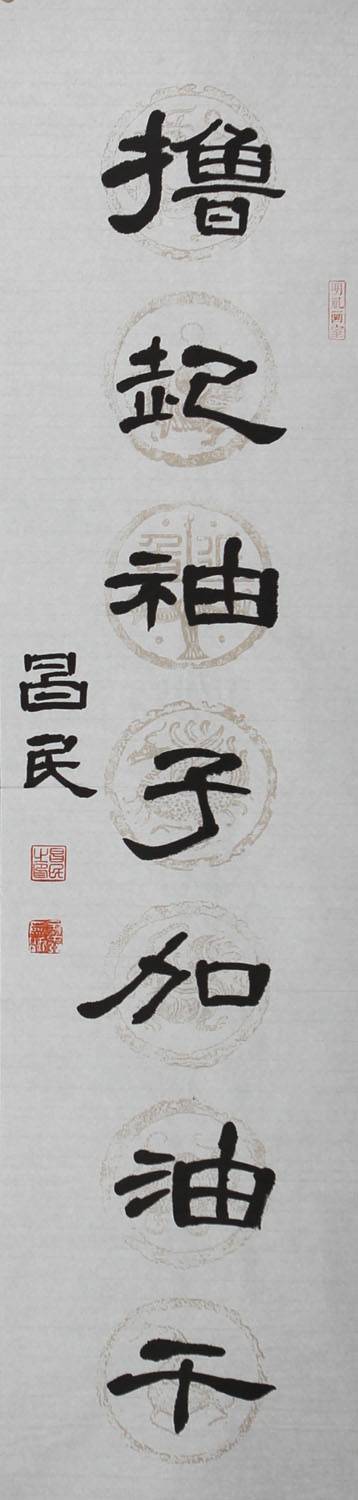 撸起袖子加油干
昌民